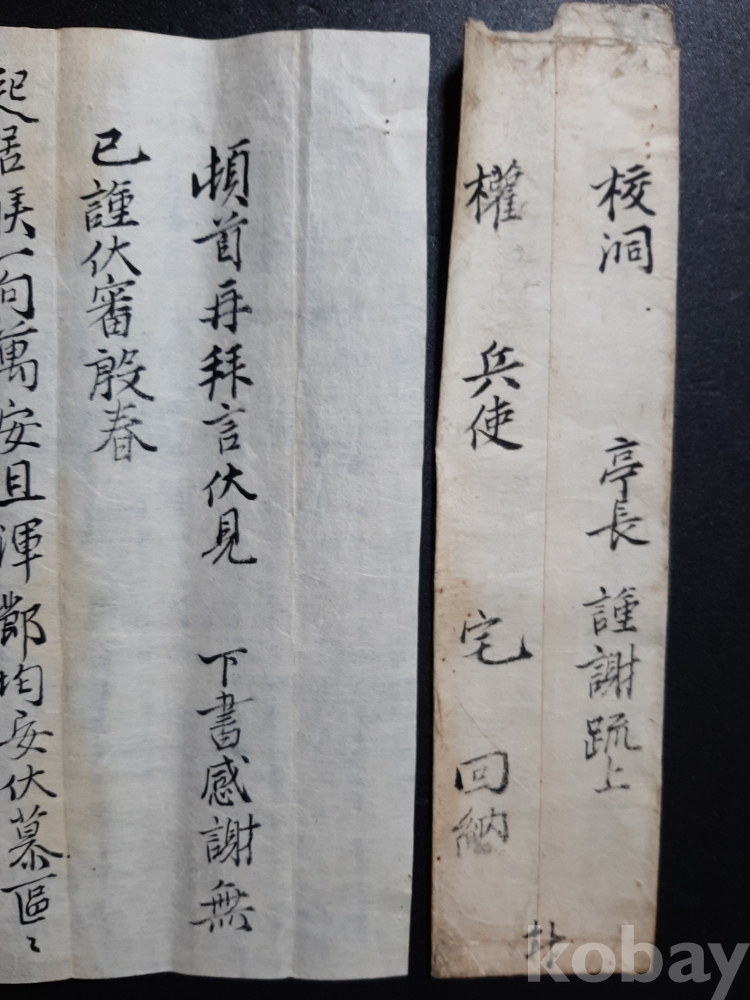 校洞 亭長 謹謝疏上
權 兵使 宅 回納
頓首再拜言伏見 下書感謝無
已謹伏審殷春
起居候一向萬安且渾節均安伏慕區〻
kobay